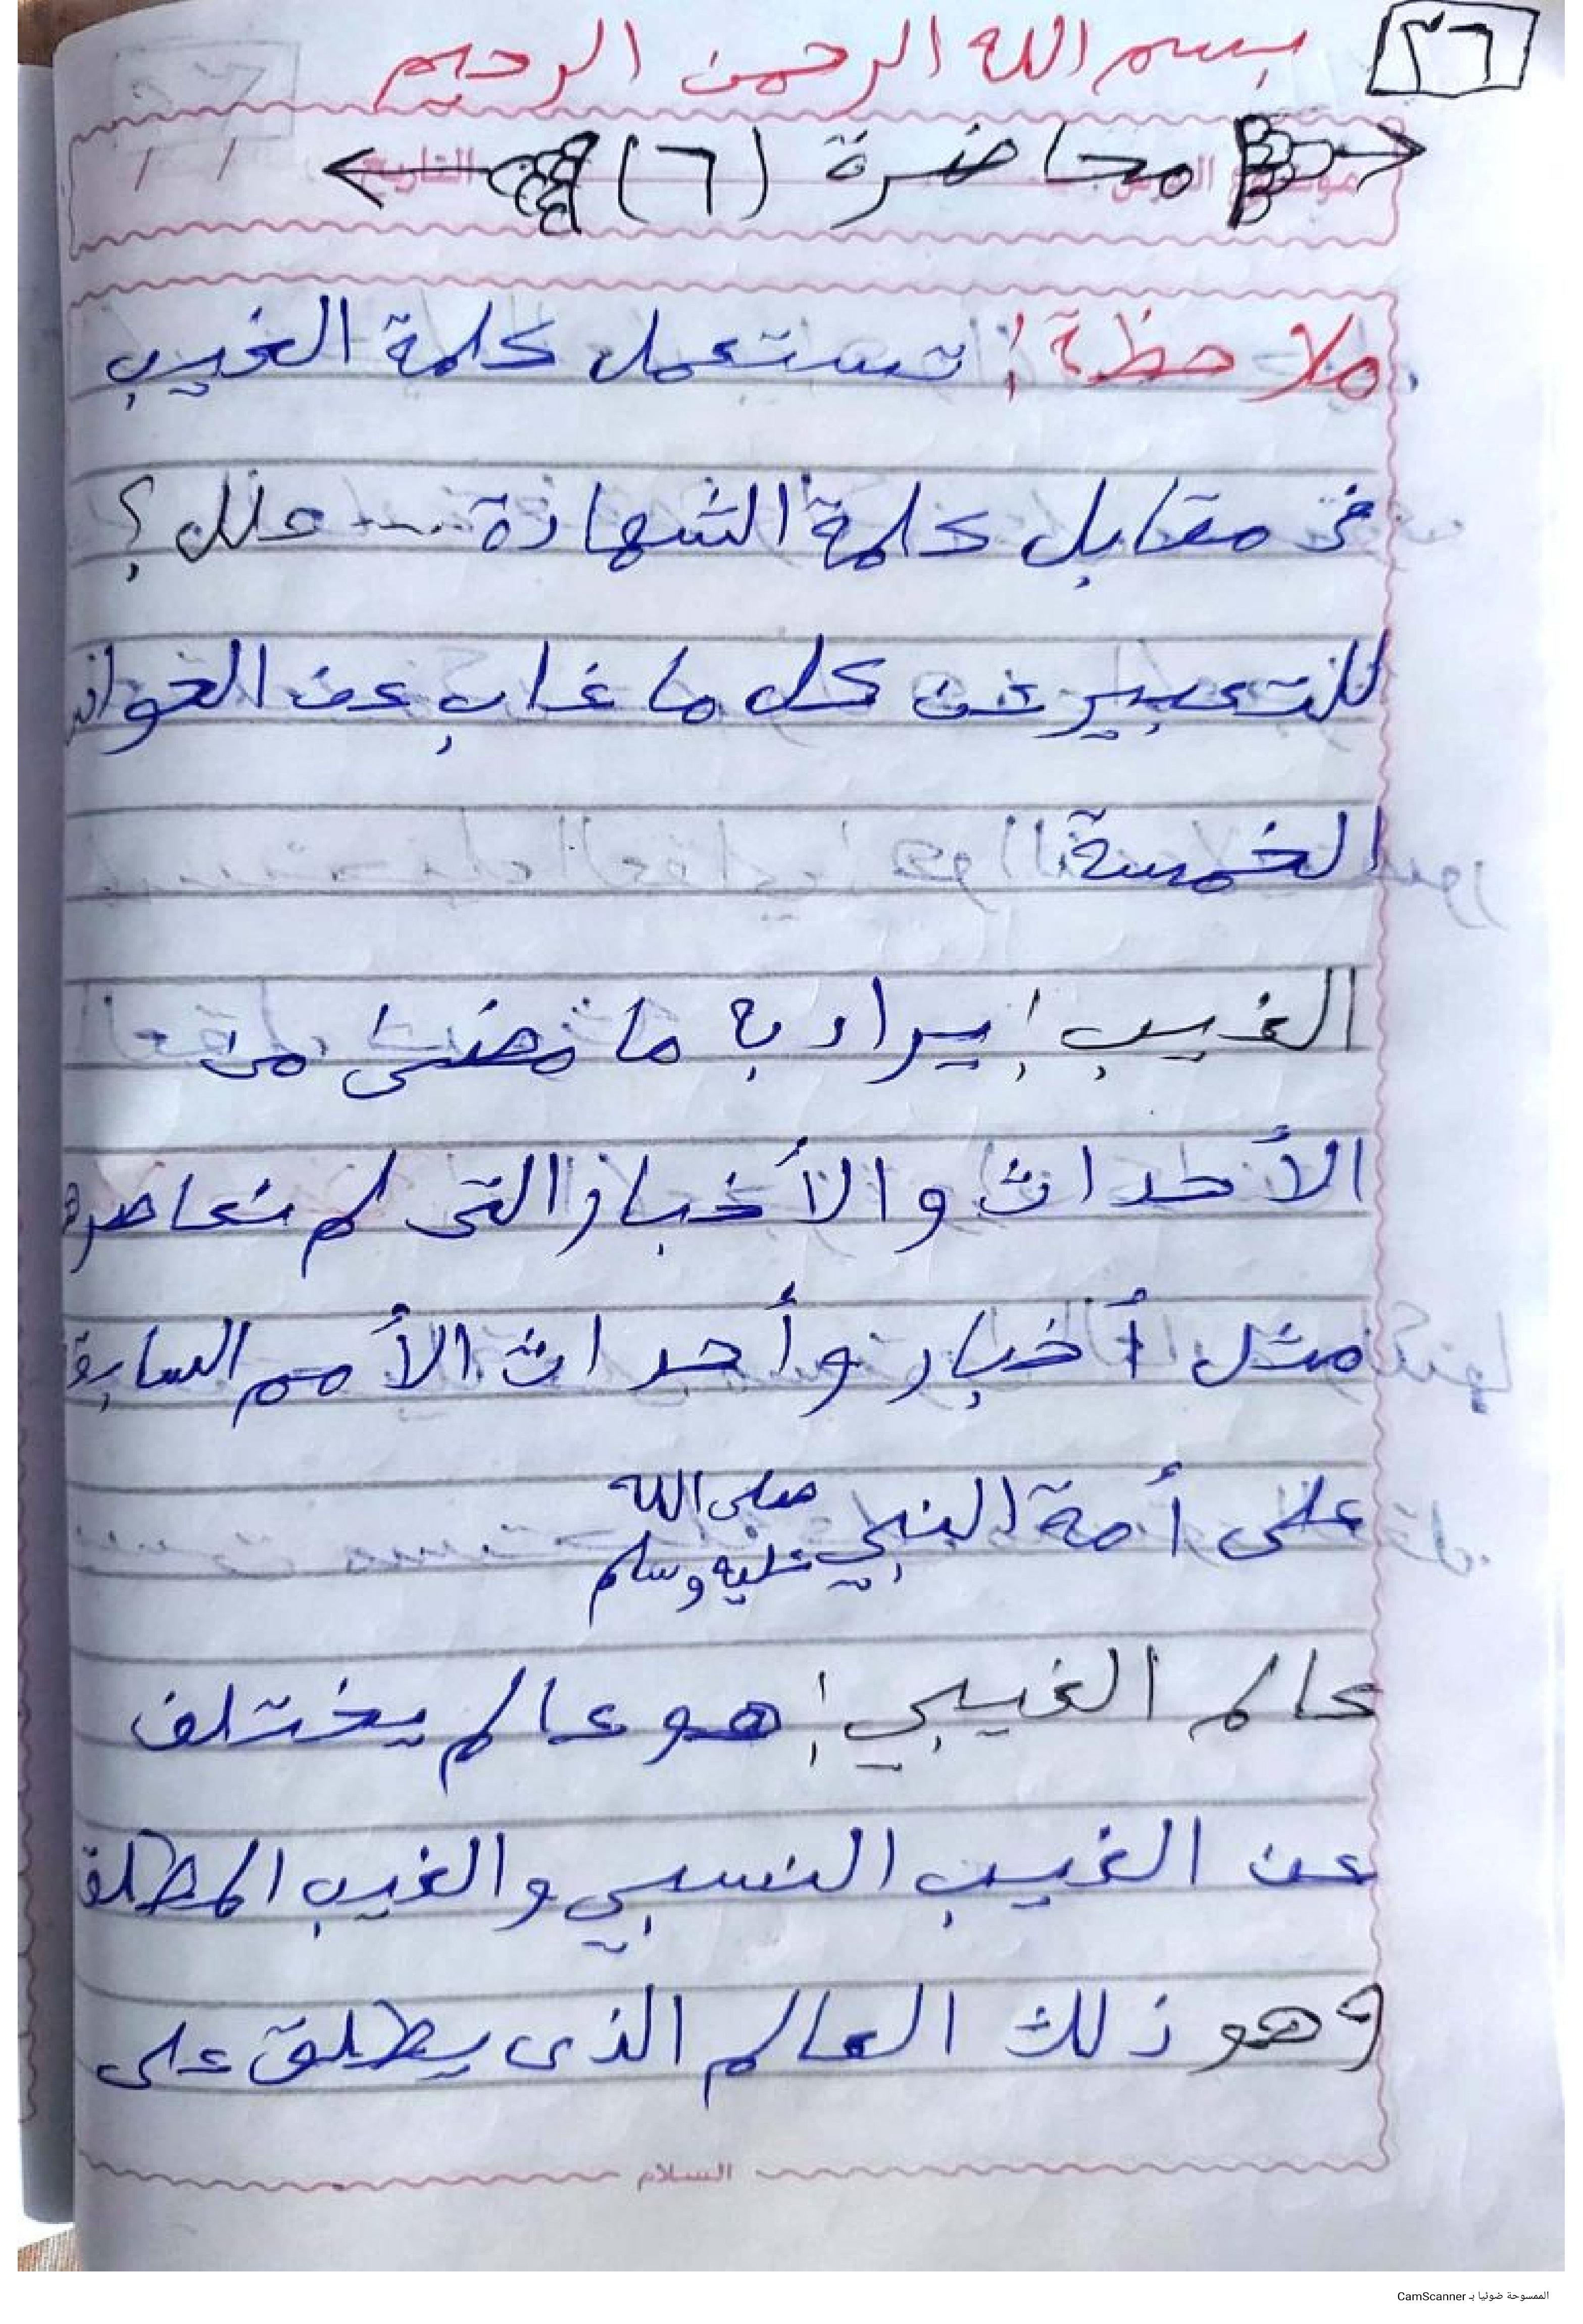 ٢٦
بسم الله الرحمن الرحيم
محاضرة (٦)
ملاحظة: تستعمل كلمة الغيب
في مقابل كلمة الشهادة .... علل؟
للتعبير عن كل ما غاب عن الحواس
الخمسة
الغيب: يراد به ما مضى من
الأحداث والأخبار التي لم نعاصرها
مثل أخبار وأحداث الأمم السابقة
على أمة النبي صلى الله عليه وسلم
عالم الغيبي: هو عالم يختلف
عن الغيب النسبي والغيب المطلق
وهو ذلك العالم الذي يطلق على
السلام
الممسوحة ضوئيا بـ CamScanner